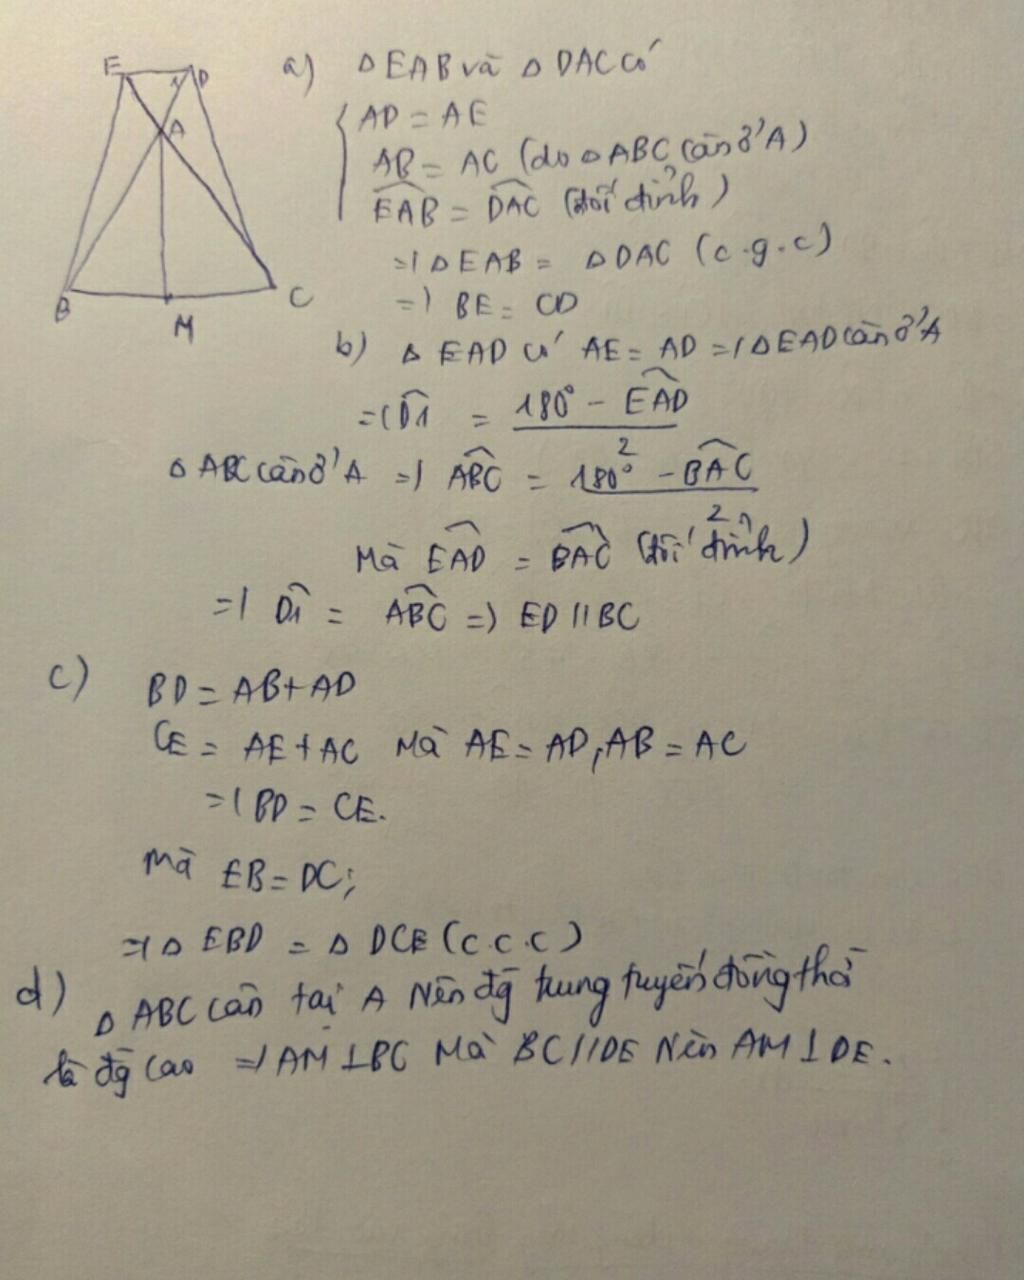 E D
1
A
B M C
a) Δ EAB và Δ DAC có
AD = AE
AB = AC (do Δ ABC cân ở A)
\widehat{EAB} = \widehat{DAC} (đối đỉnh)
=> Δ EAB = Δ DAC (c.g.c)
=> BE = CD
b) Δ EAD có AE = AD => Δ EAD cân ở A
=> \widehat{D1} = \frac{180° - \widehat{EAD}}{2}
Δ ABC cân ở A => \widehat{ABC} = \frac{180° - \widehat{BAC}}{2}
Mà \widehat{EAD} = \widehat{BAC} (đối đỉnh)
=> \widehat{D1} = \widehat{ABC} => ED // BC
c) BD = AB + AD
CE = AE + AC Mà AE = AD, AB = AC
=> BD = CE.
Mà EB = DC;
=> Δ EBD = Δ DCE (c.c.c)
d) Δ ABC cân tại A Nên đg trung tuyến đồng thời
là đg cao => AM ⊥ BC Mà BC // DE Nên AM ⊥ DE.